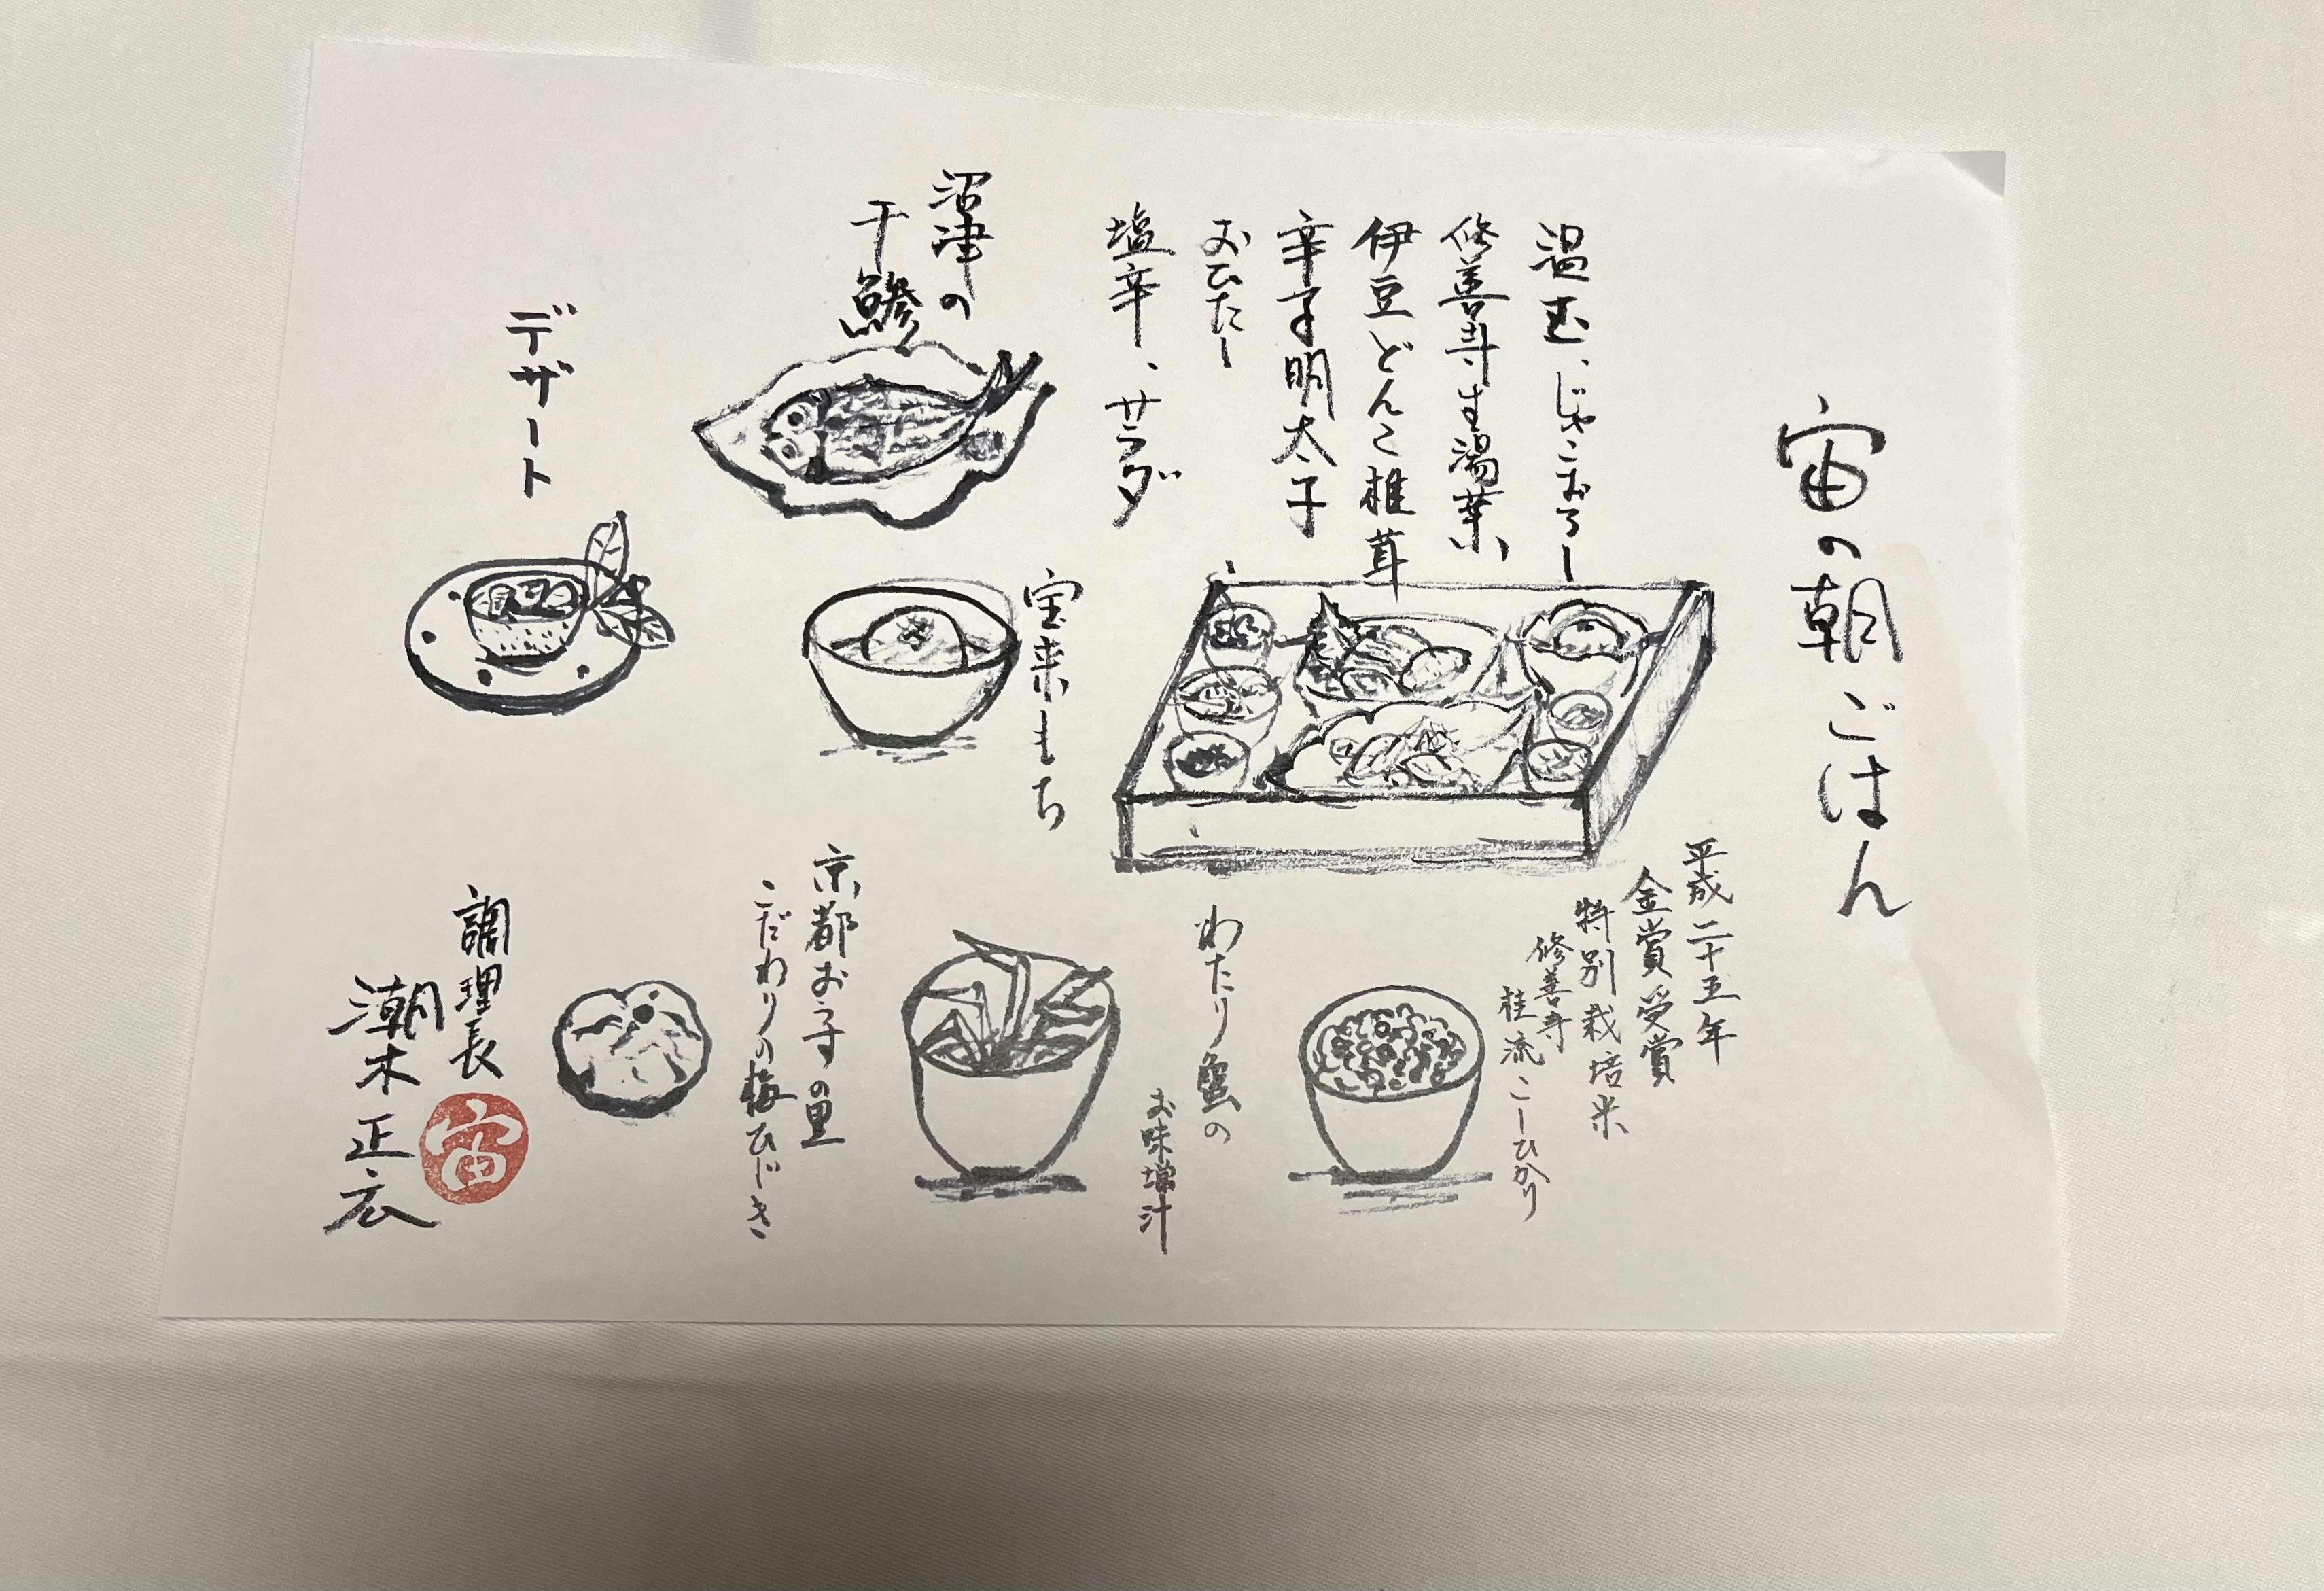 宙の朝ごはん
温玉、じゃこおろし
修善寺生湯葉
伊豆どんこ椎茸
辛子明太子
おひたし
塩辛、サラダ
沼津の
干鯵
デザート
宝来もち
平成二十五年
金賞受賞
特別栽培米
修善寺
桂流こしひかり
わたり蟹の
お味噌汁
京都おうすの里
こだわりの梅ひじき
調理長
潮木正広
宙